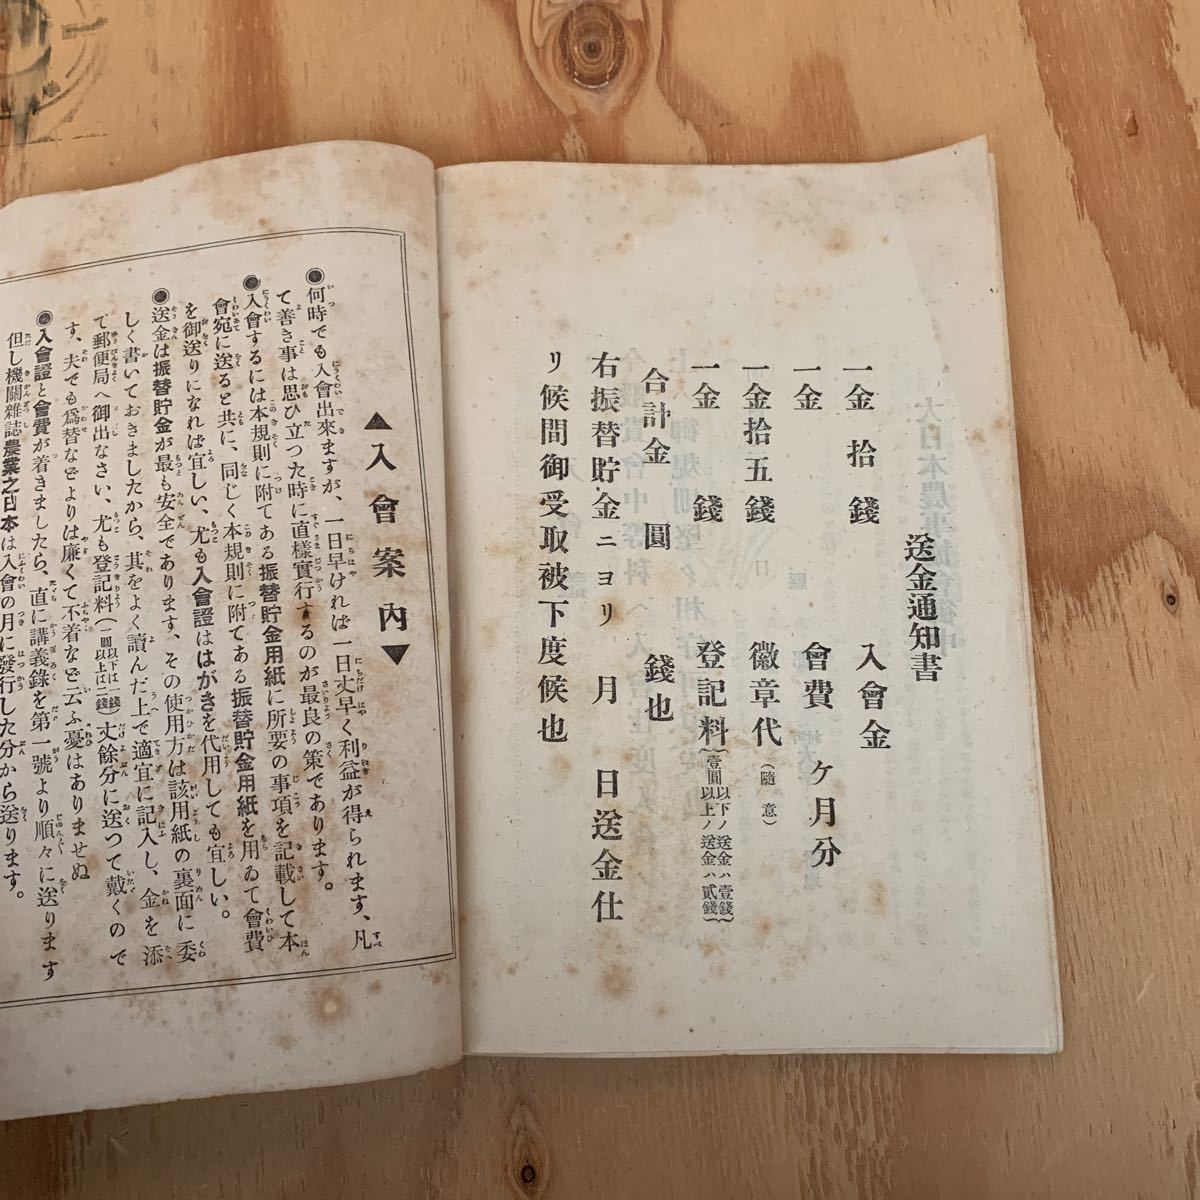 送金通知書
一金拾錢 入會金
一金 會費 ケ月分
一金拾五錢 徽章代(隨意)
一金 錢 登記料(壹圓以下ノ送金ハ壹錢 壹圓以上ノ送金ハ貳錢)
合計金 圓 錢也
右振替貯金ニヨリ 月 日送金仕
リ候間御受取被下度候也
▲入會案内▼
◉何時でも入會出來ますが、一日早ければ一日丈早く利益が得られます、凡
て善き事は思ひ立つた時に直樣實行するのが最良の策であります。
◉入會するには本規則に附てある振替貯金用紙に所要の事項を記載して本
會宛に送ると共に、同じく本規則に附てある振替貯金用紙を用ゐて會費
を御送りになれば宜しい、尤も入會證ははがきを代用しても宜しい。
◉送金は振替貯金が最も安全であります、その使用方は該用紙の裏面に委
しく書いておきましたから、其をよく讀んだ上で適宜に記入し、金を添
で郵便局へ御出なさい、尤も登記料(一圓以下は一錢 一圓以上は二錢)丈餘分に送つて戴くので
す、夫でも爲替などよりは廉くて不着など云ふ憂はありませぬ
◉入會證と會費が着きましたら、直に講義錄を第一號より順々に送ります
但し機關雜誌農業之日本は入會の月に發行した分から送ります。